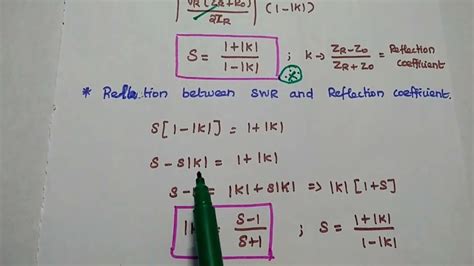 V_R (Z_R + R_0) / 2Z_R (1-|K|)
S = 1+|K| / 1-|K| ; K → Z_R - Z_0 / Z_R + Z_0 = Reflection coefficient
* Relation between SWR and Reflection coefficient.
S[1-|K|] = 1+|K|
S - S|K| = 1+|K|
S - = |K| + S|K| ⇒ |K| [1+S]
|K = S-1 / S+1 ; S = 1+|K| / 1-|K|